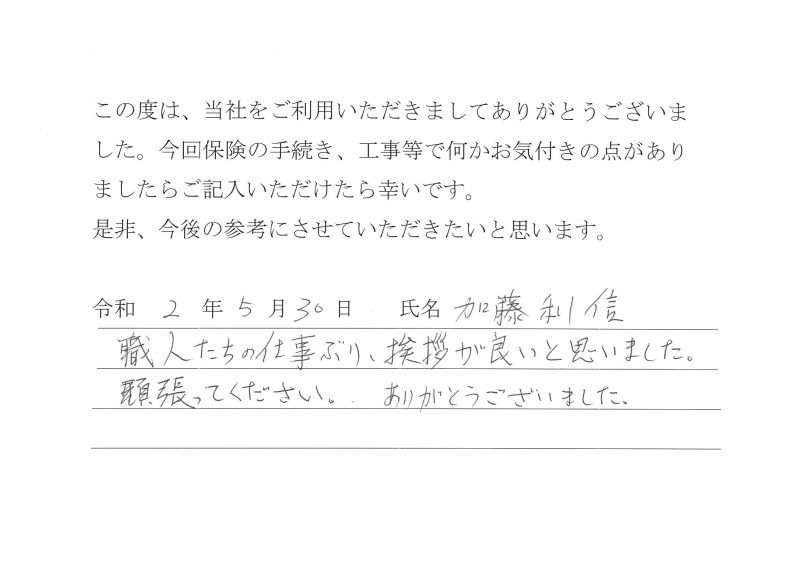 この度は、当社をご利用いただきましてありがとうございま
した。今回保険の手続き、工事等で何かお気付きの点があり
ましたらご記入いただけたら幸いです。
是非、今後の参考にさせていただきたいと思います。
令和 2 年 5 月 30 日 氏名 加藤利信
職人たちの仕事ぶり、挨拶が良いと思いました。
頑張ってください。 ありがとうございました。